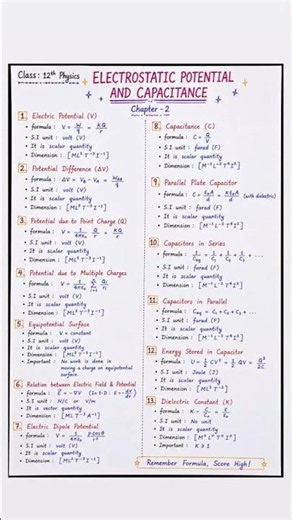 Class: 12th Physics
ELECTROSTATIC POTENTIAL
AND CAPACITANCE
Chapter - 2
1 Electric Potential (V)
• formula : V = W/q = KQ/r
• S.I unit : volt (V)
• It is scalar quantity
• Dimension : [ML²T⁻³I⁻¹]
2. Potential Difference (ΔV)
• formula : ΔV = V_B - V_A =
• S.I unit : volt (V)
• It is scalar quantity
• Dimension : [ML²T⁻³I⁻¹]
3. Potential due to Point Charge (Q)
• formula : V = 1/4πε₀ Q/r = KQ/r
• S.I unit : volt (V)
• It is scalar quantity
• Dimension : [ML²T⁻³I⁻¹]
4. Potential due to Multiple Charges
• formula : V = 1/4πε₀
• S.I unit : volt (V)
• It is scalar quantity
• Dimension : [ML²T⁻³I⁻¹]
5. Equipotential Surface
• formula : V = constant
• S.I unit : volt (V)
• It is scalar quantity
• Dimension : [ML²T⁻³I⁻¹]
• Important : No work is done in
moving a charge on equipotential
surface.
6. Relation between Electric Field & Potential
• formula : E = -∇V (In 1-D : E = -dV/dx)
• S.I unit : N/C or V/m
• It is vector quantity
• Dimension :
7. Electric Dipole Potential
• formula : V = 1/4πε₀ p cosθ/r²
• S.I unit : volt (V)
• It is scalar quantity
• Dimension : [ML²T⁻³I⁻¹]
8. Capacitance (C)
• formula : C = Q/V
• S.I unit : farad (F)
• It is scalar quantity
• Dimension : [M⁻¹L⁻²T⁴I²]
9. Parallel Plate Capacitor
• formula : C = ε₀A/d = Kε₀A/d (with dielectric)
• S.I unit : farad (F)
• It is scalar quantity
• Dimension : [M⁻¹L⁻²T⁴I²]
10. Capacitors in Series
• formula : 1/Ceq = 1/C₁ + 1/C₂ + 1/C₃ + ...
• S.I unit : farad (F)
• It is scalar quantity
• Dimension : [M⁻¹L⁻²T⁴I²]
11. Capacitors in Parallel
• formula : Ceq = C₁ + C₂ + C₃ + ...
• S.I unit : farad (F)
• It is scalar quantity
• Dimension : [M⁻¹L⁻²T⁴I²]
12 Energy Stored in Capacitor
• formula : U = 1/2 CV² = 1/2 QV = Q²/2C
• S.I unit : Joule (J)
• It is scalar quantity
• Dimension : [ML²T⁻²]
13. Dielectric Constant (K)
• formula : K = C/C₀ =
• S.I unit : No unit
• It is scalar quantity
• Dimension : [M⁰L⁰T⁰I⁰]
• Important : K ≥ 1
Remember Formula, Score High!